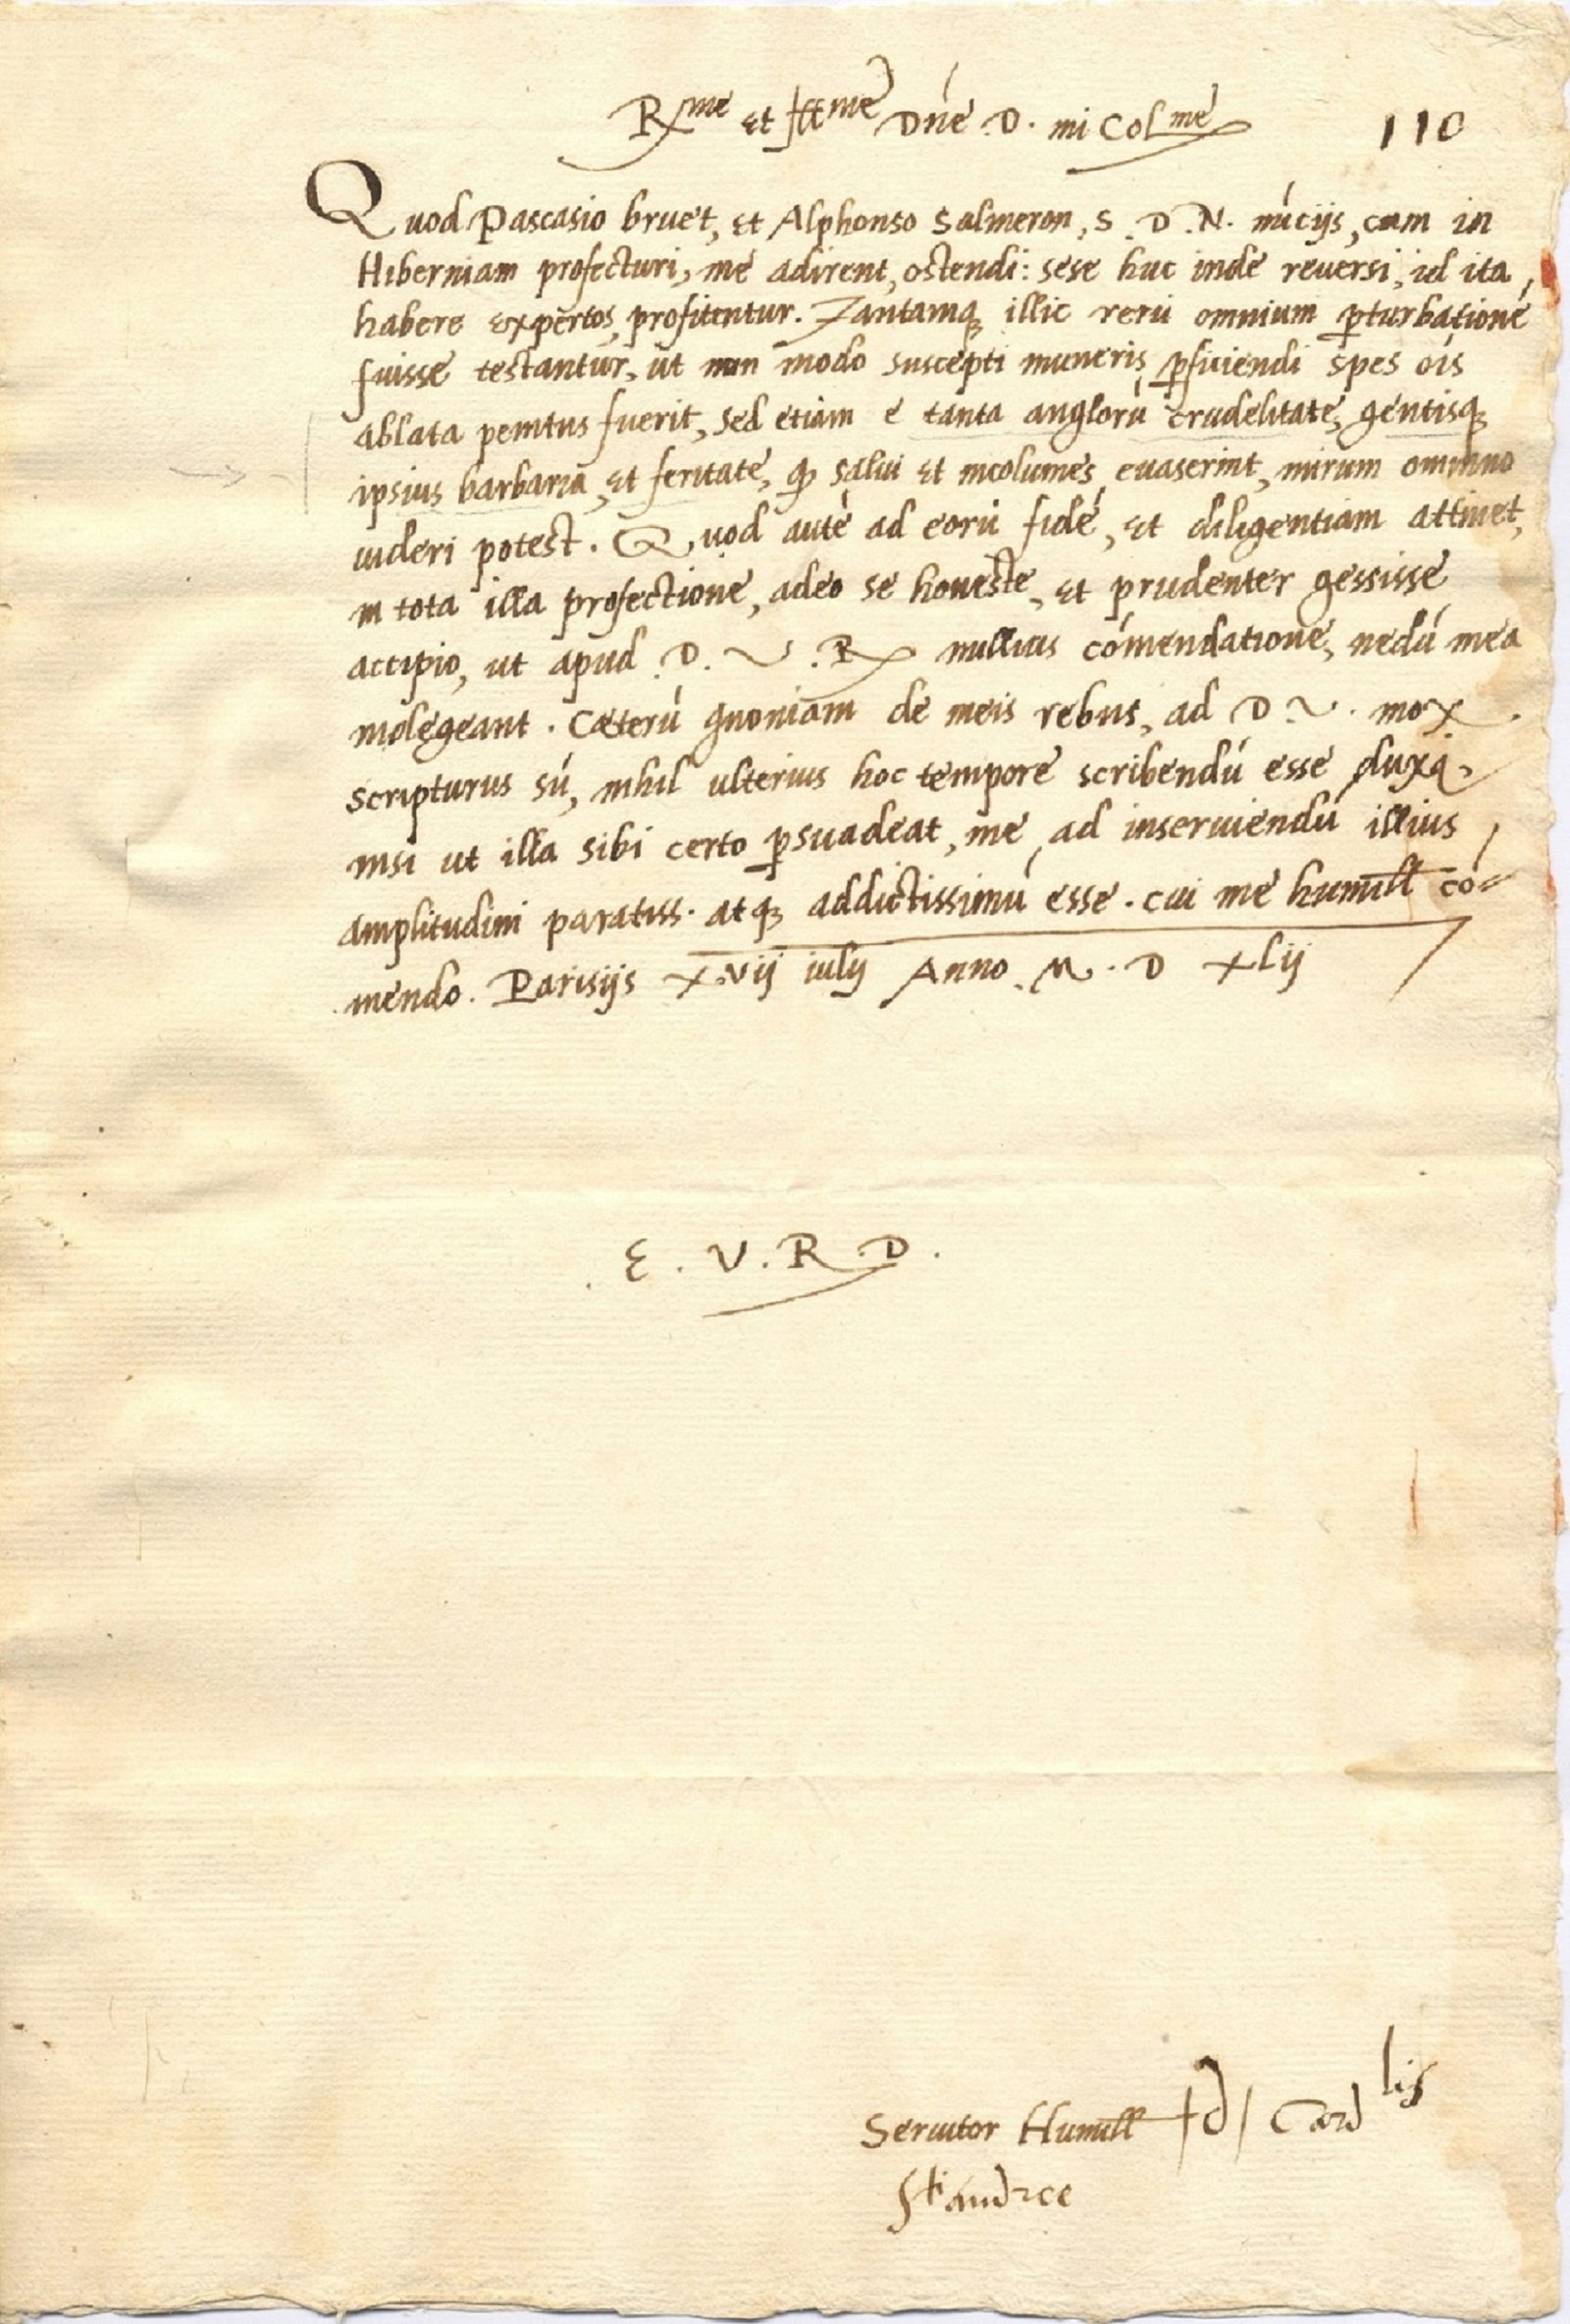 R.me et Ill.me Dńe D. mi Col.me
110
Quod Pascasio bruet, et Alphonso Salmeron, S. D. N. núcijs, cum in
Hiberniam profecturi, me adirent, ostendi: sese huc inde reversi, id ita
habere expertos, profitentur. Tantamq; illic rerú omnium ꝑturbationé
fuisse testantur, ut non modo suscepti muneris ꝑficiendi spes oís
ablata penitus fuerit, sed etiam e tanta angloru crudelitate, gentisq;
ipsius barbaria, et feritate, qd salui et incolumes euaserint, mirum omnino
uideri potest. Quod auté ad eorú fidé, et diligentiam attinet,
in tota illa profectione, adeo se honeste, et prudenter gessisse
accipio, ut apud D. V. R. nullius cómendatione, nedú mea
indegeant. Cæterú quoniam de meis rebus, ad D. V. mox
scripturus sú, nihil ulterius hoc tempore scribendú esse duxi,
nisi ut illa sibi certo ꝑsuadeat, me, ad inseruiendú illius
amplitudini paratiss. atq; addictissimú esse. cui me humill có-
mendo. Parisijs XVij iulij Anno. M. D xlij
E. V. R. D.
Seruitor Humill d/ Cardlis
Sti andree